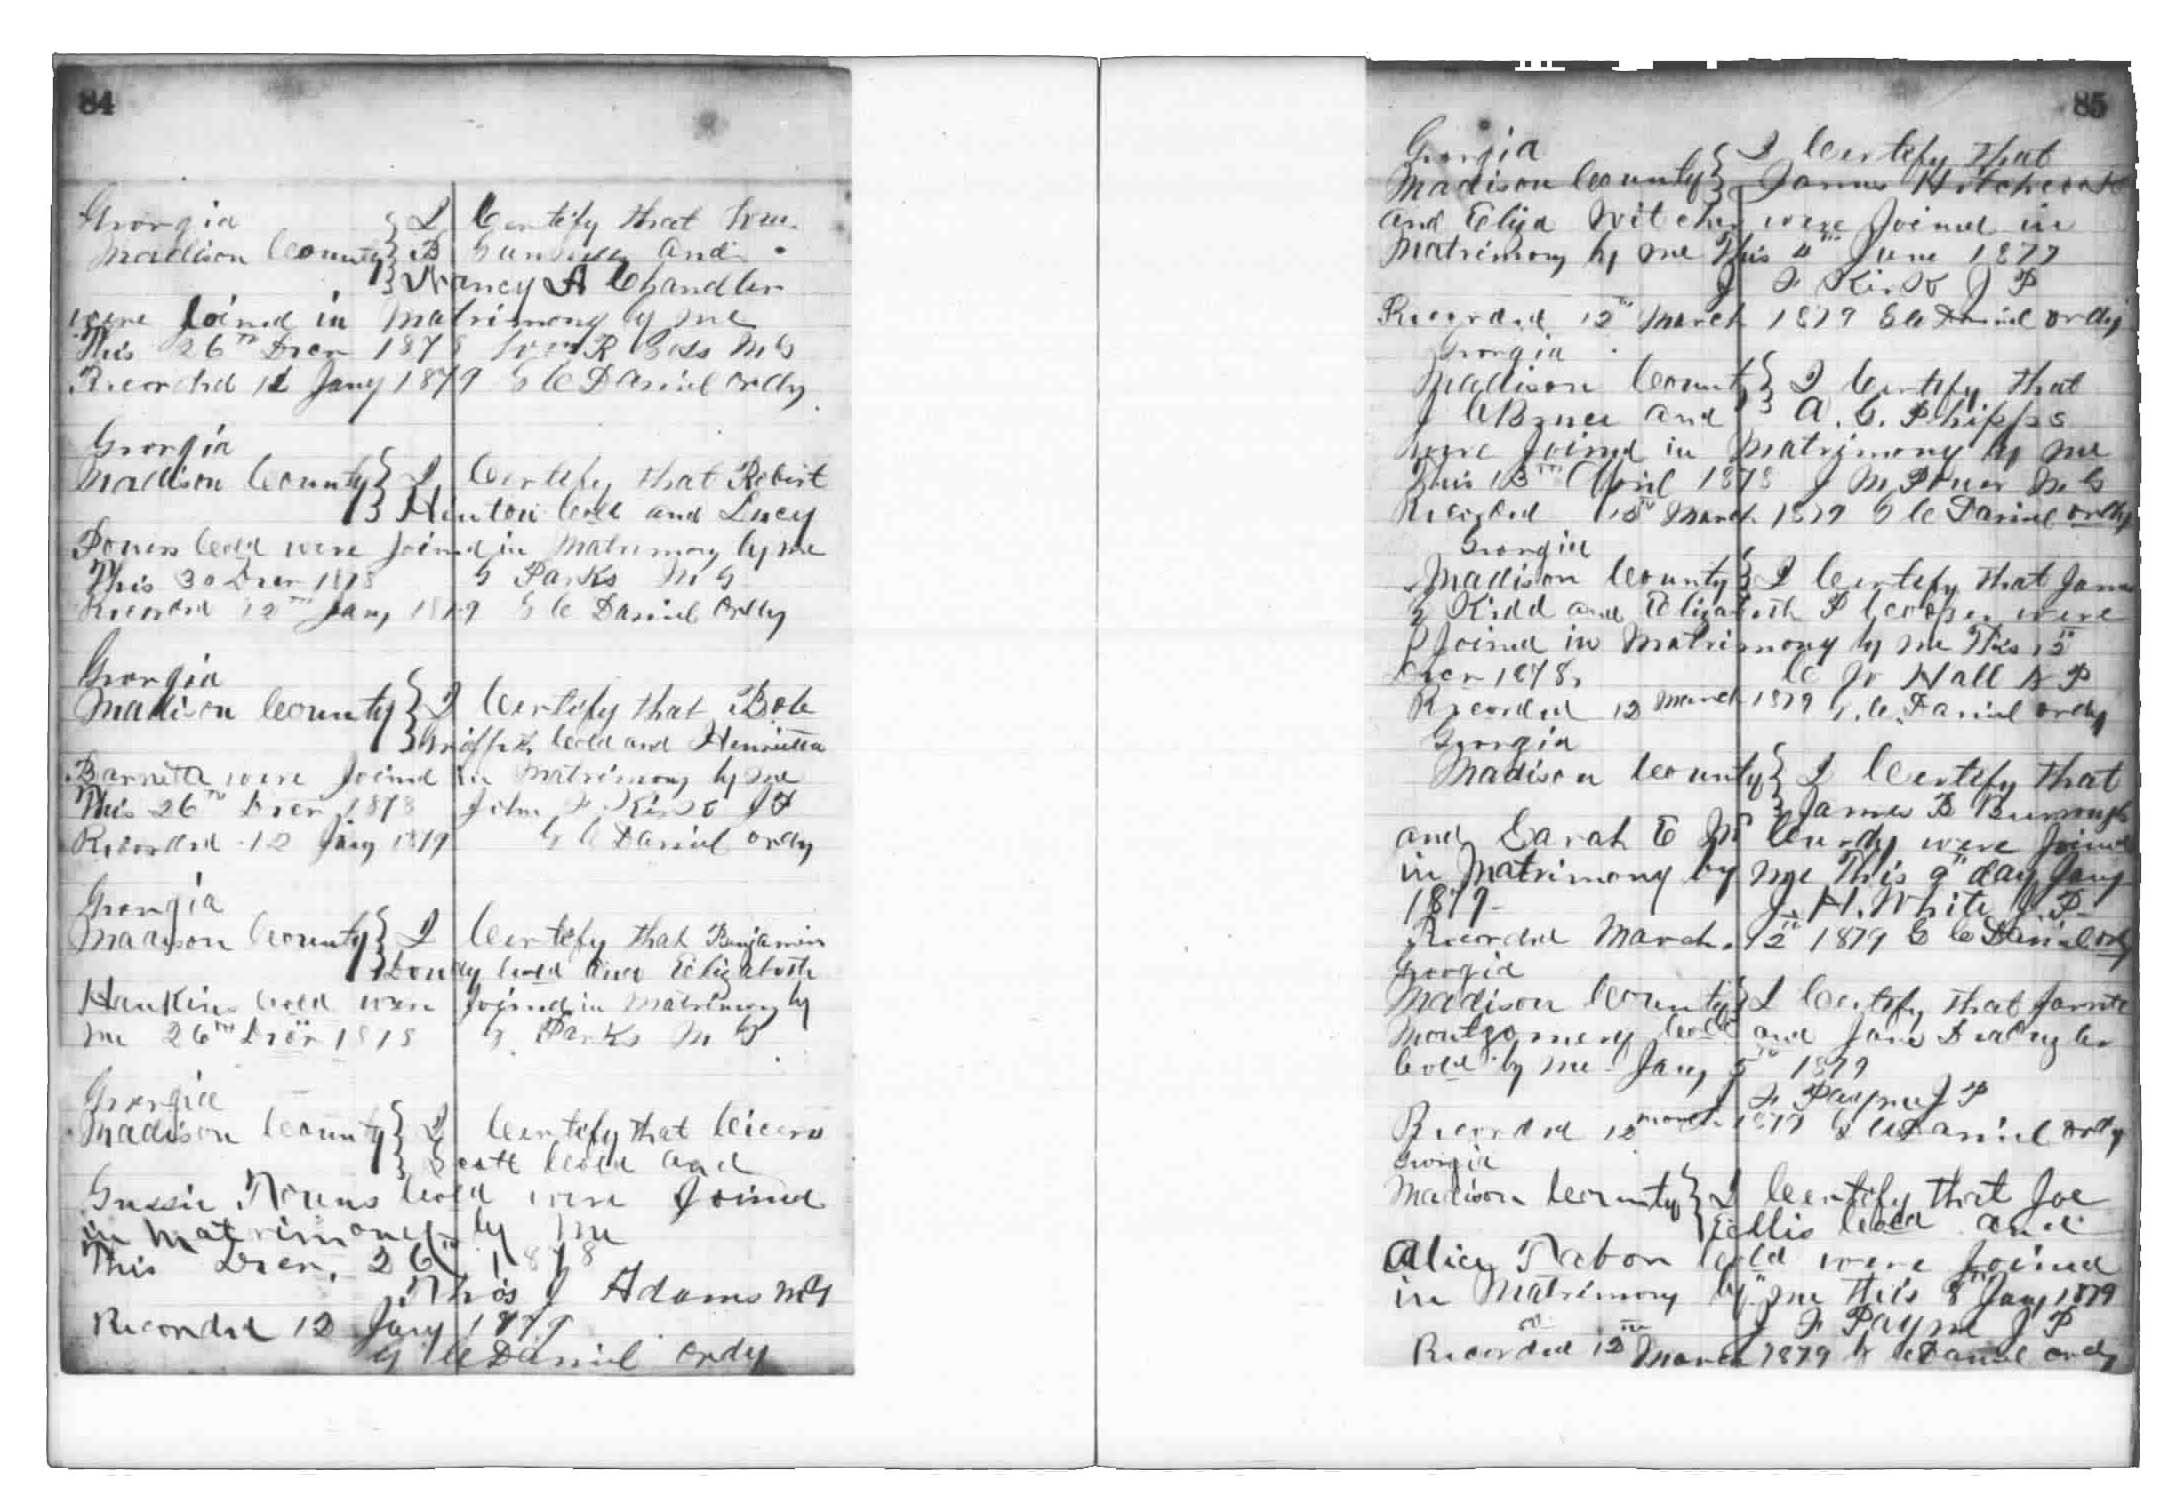 84
Georgia
Madison County } I Certify that Wm
B and
Nancy A Chandler
were Joined in Matrimony by me
This 26th Decr 1878 Wm R Goss M G
Recorded 12 Jany 1879 G C Daniel Ordy
Georgia
Madison County } I Certify that Robert
Hinton Cold and Lucy
Powers Cold were Joined in Matrimony by me
This 30 Decr 1878 G Parks M G
Recorded 12th Jany 1879 G C Daniel Ordy
Georgia
Madison County } I Certify that Bob
Griffith Cold and Henrietta
Barnett were Joined in Matrimony by me
This 26th Decr 1878 John F Kirk J P
Recorded 12 Jany 1879 G C Daniel Ordy
Georgia
Madison County } I Certify that Benjamin
Cold and Elizabeth
Hawkins Cold were Joined in Matrimony by
me 26th Decr 1878 G. Parks M G
Georgia
Madison County } I Certify that Cicero
Scott Cold and
Gussie Cold were Joined
in Matrimony by me
This Decr. 26th 1878
Thos J Adams M G
Recorded 12 Jany 1879
G C Daniel Ordy
85
Georgia I Certify that
Madison County } James Hitchcock
and Eliza Witcher were Joined in
Matrimony by me This June 1877
J F Kirk J P
Recorded 12th March 1879 G C Daniel Ordy
Georgia
Madison County } I Certify that
J and A. G. Phipps
were Joined in Matrimony by me
This 13th April 1878 J M Power M G
Recorded 12th March 1879 G C Daniel Ordy
Georgia
Madison County } I Certify that James
G Kidd and Elizabeth P Cooper were
Joined in Matrimony by me This 15th
Decr 1878. Hall N P
Recorded 12 March 1879 G. C. Daniel Ordy
Georgia
Madison County } I Certify that
James B Burroughs
and Sarah E McCurdy were Joined
in Matrimony by me This 9th day Jany
1879 J. H. White J. P.
Recorded March. 12th 1879 G C Daniel Ordy
Georgia
Madison County } I Certify that
Montgomery Cold and Jane
Cold by me Jany 5th 1879
J F Payne J P
Recorded 12 March 1879 G C Daniel Ordy
Georgia
Madison County } I Certify that Joe
Ellis Cold and
Alice Tabor Cold were Joined
in Matrimony by me this 8th Jany 1879
J F Payne J P
Recorded 12th March 1879 G C Daniel Ordy